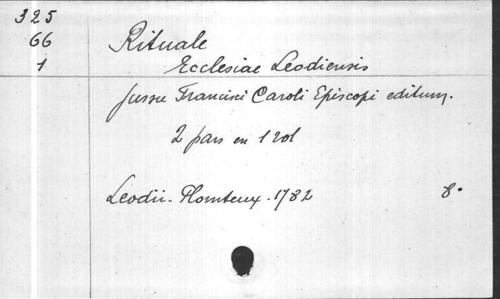 325
66
1
Rituale
Ecclesiae Leodiensis
jussu Francisci Caroli Episcopi editum.
2 pars en 1 vol
Leodii. Plomteux. 1782 8°